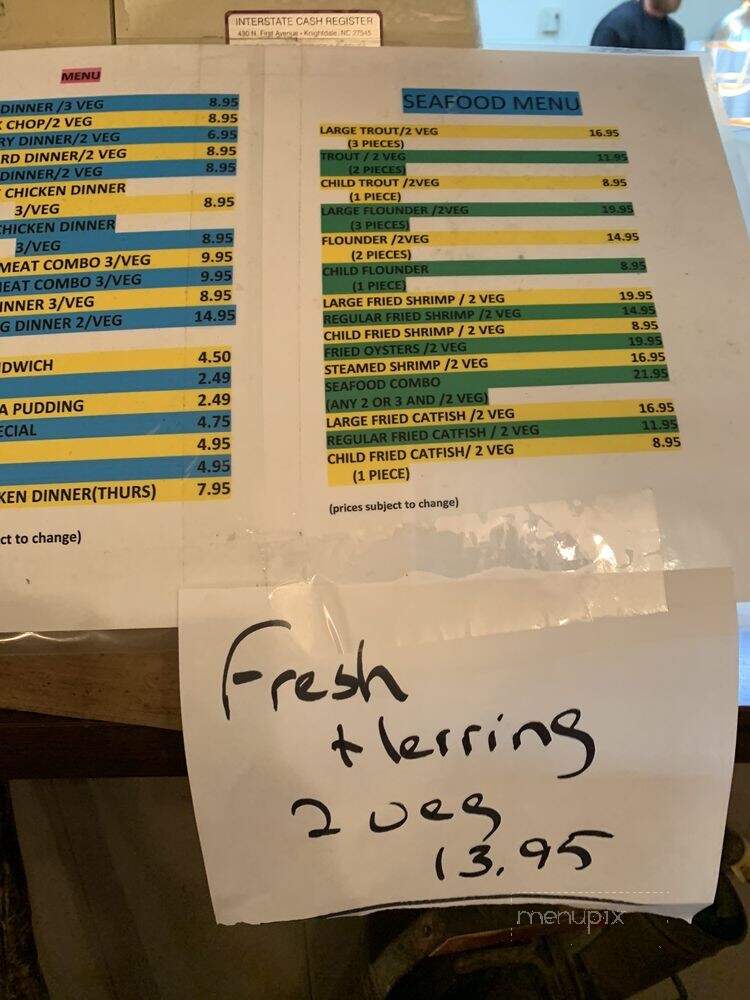 INTERSTATE CASH REGISTER
430 N. First Avenue - Knightdale, NC 27545
MENU
DINNER /3 VEG 8.95
CHOP/2 VEG 8.95
RY DINNER/2 VEG 6.95
RD DINNER/2 VEG 8.95
DINNER/2 VEG 8.95
CHICKEN DINNER
3/VEG 8.95
HICKEN DINNER
3/VEG 8.95
MEAT COMBO 3/VEG 9.95
MEAT COMBO 3/VEG 9.95
INNER 3/VEG 8.95
G DINNER 2/VEG 14.95
DWICH 4.50
2.49
A PUDDING 2.49
ECIAL 4.75
4.95
4.95
KEN DINNER(THURS) 7.95
ct to change)
SEAFOOD MENU
LARGE TROUT/2 VEG 16.95
(3 PIECES)
TROUT / 2 VEG 11.95
(2 PIECES)
CHILD TROUT /2VEG 8.95
(1 PIECE)
LARGE FLOUNDER /2VEG 19.95
(3 PIECES)
FLOUNDER /2VEG 14.95
(2 PIECES)
CHILD FLOUNDER 8.95
(1 PIECE)
LARGE FRIED SHRIMP / 2 VEG 19.95
REGULAR FRIED SHRIMP /2 VEG 14.95
CHILD FRIED SHRIMP / 2 VEG 8.95
FRIED OYSTERS /2 VEG 19.95
STEAMED SHRIMP /2 VEG 16.95
SEAFOOD COMBO 21.95
(ANY 2 OR 3 AND /2 VEG)
LARGE FRIED CATFISH /2 VEG 16.95
REGULAR FRIED CATFISH / 2 VEG 11.95
CHILD FRIED CATFISH/ 2 VEG 8.95
(1 PIECE)
(prices subject to change)
Fresh
Herring
2 veg
13.95
menupix